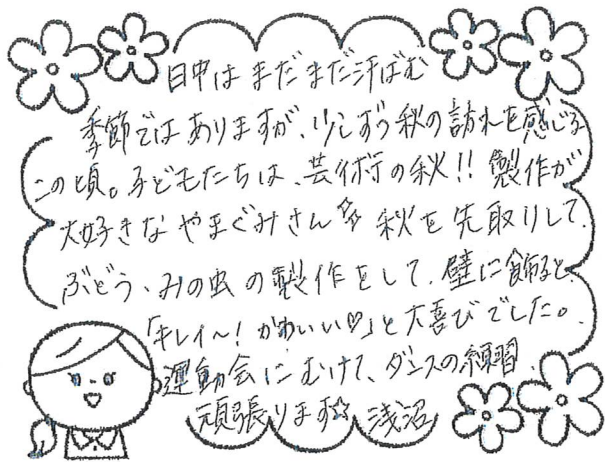 日中は まだまだ汗ばむ
季節ではありますが、少しずつ秋の訪れを感じる
この頃。子どもたちは、芸術の秋!! 製作が
大好きなやまぐみさん✨ 秋を先取りして、
ぶどう、みの虫の製作をして、壁に飾ると、
「キレイ〜！かわいい♡」と大喜びでした。
運動会にむけて、ダンスの練習、
頑張ります☆ 浅沼